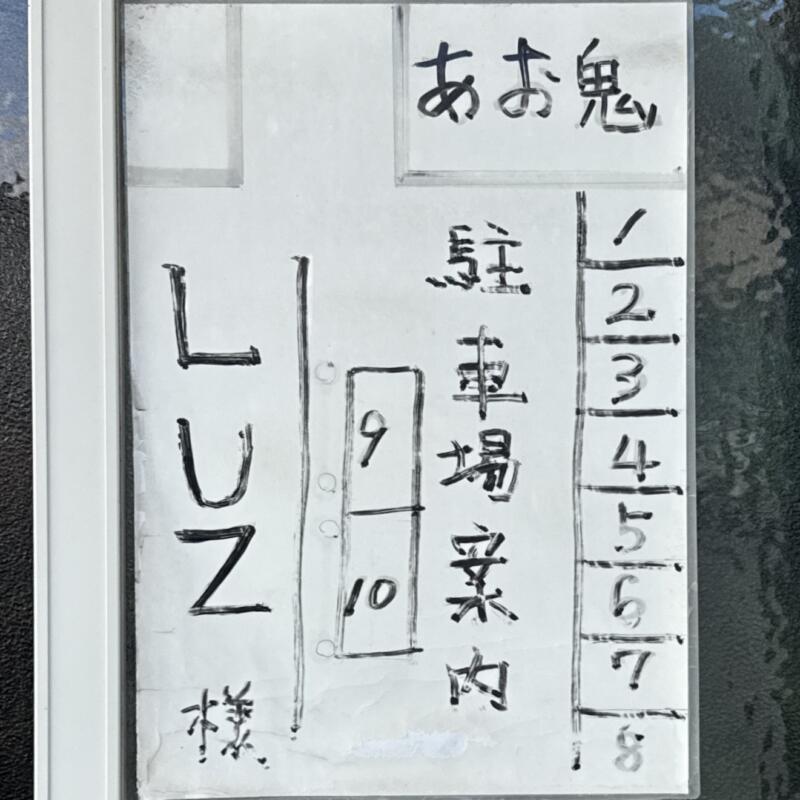 あお鬼
1
2
3
4
5
6
7
8
駐車場案内
9
10
LUZ様